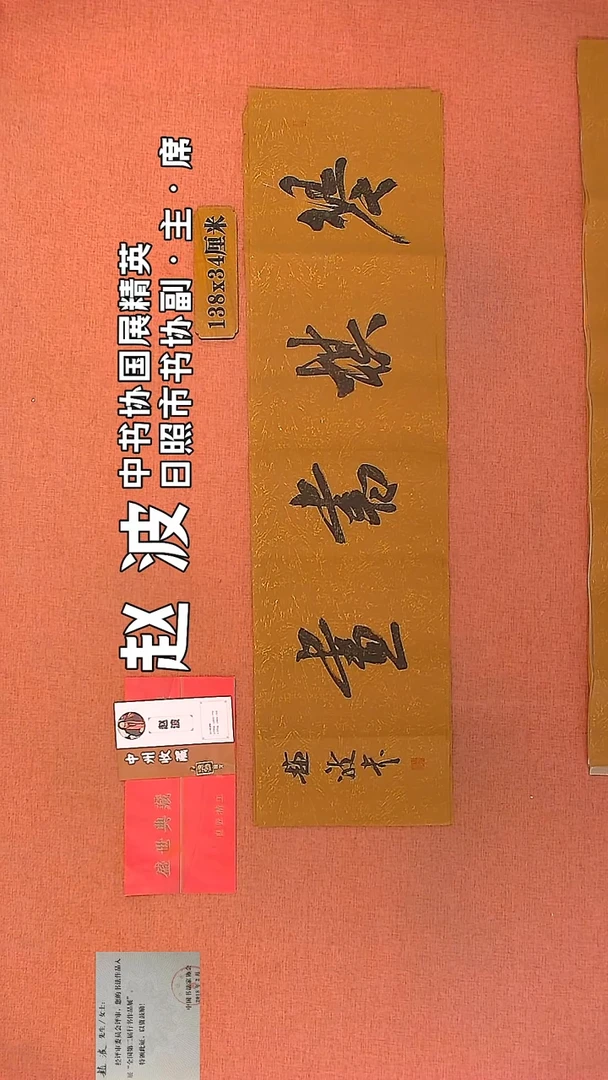 赵波
中书协国展精英
日照市书协副·主·席
138x34厘米
琴棋书画
赵波书
赵波
中州收藏
盛世典藏
赵波 先生/女士:
经评审委员会评审,您的书法作品入
展“全国第二届行书作品展”,
特颁此证,以资鼓励!
中国书法家协会